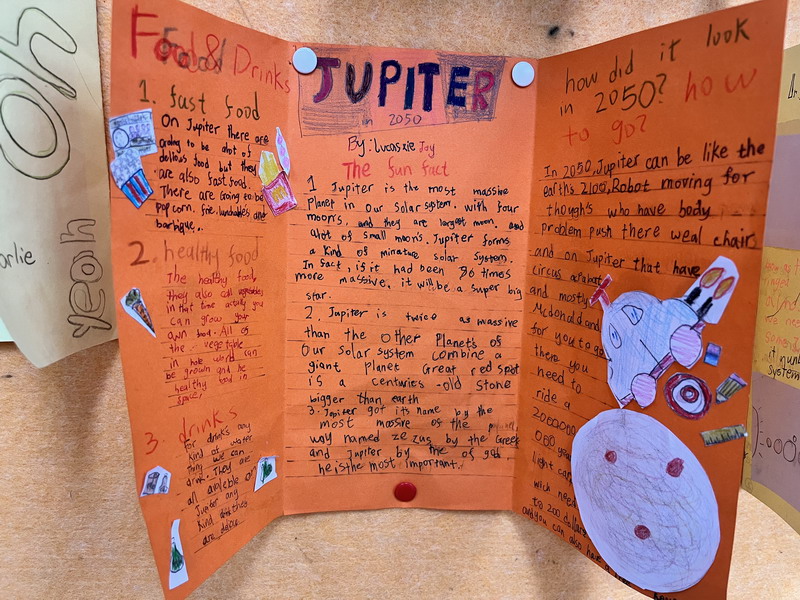 oh
yeah
arlie
Food & Drinks
1. fast food
On Jupiter there are
going to be alot of
food but they
are also fast food.
There are going to be
popcorn, frie, lunchables and
2. healthy food
The healthy food
they also call vegetables
in that food actually you
can grow your
own food. All of
the vegetable
in hole world can
be grown and be
healthy food in
space!
3. drinks
for drinks any
kind of water
thing we can
drink. They are
all avaleble of
Jupiter any
kind they
are
JUPITER
in 2050
By: Lucaszie Joy
The fun fact
1 Jupiter is the most massive
planet in our solar system. with four
moon's, and they are largest moon. and
alot of small moon's. Jupiter forms
a kind of minature solar system.
In fact, if it had been 86 times
more massive, it will be a super big
star.
2. Jupiter is twice as massive
than the other Planets of
Our solar system combine a
giant planet Great red spot
is a centuries -old stone
bigger than earth
3. Jupiter got its name by the
most massive of the
way named zezus by the Greek
and Jupiter by the of gob
he is the most important.
how did it look
in 2050? how
to go?
In 2050, Jupiter can be like the
earth's 2100, Robot moving for
though's who have body
problem push there weal chair
and on Jupiter that have
circus
and mostly
Mcdonald and
for you to go
there you
need to
ride a
light can
wich need
to 200 dollars
and you can also have a
system